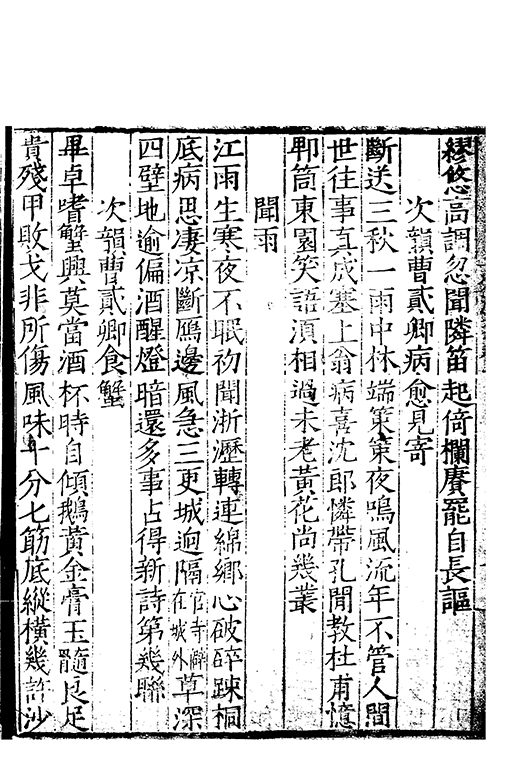 繆悠高調忽聞隣笛起倚欄賡罷自長謳
次韻曹貳卿病愈見寄
斷送三秋一雨中休端策策夜鳴風流年不管人間
世往事真成塞上翁病喜沈郎憐帶孔閒教杜甫憶
郫筒東園笑語須相過未老黃花尚幾叢
聞雨
江雨生寒夜不眠初聞淅瀝轉連綿鄉心破碎踈桐
底病思凄凉斷鴈邊風急三更城逈隔官寺僻在城外草深
四壁地逾偏酒醒燈暗還多事占得新詩第幾聯
次韻曹貳卿食蟹
畢卓嗜蟹興莫當酒杯時自傾鵝黃金膏玉髓良足
貴殘甲敗戈非所傷風味十分匕筯底縱橫幾許沙